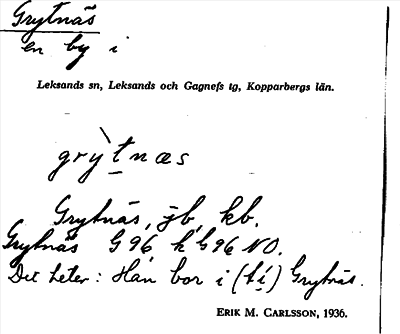 Grytnäs
en by i
Leksands sn, Leksands och Gagnefs tg, Kopparbergs län.
grỳt̲næs
Grytnäs, jb, kb.
Grytnäs G 96, k G 96 NO.
Det heter: Han bor i (ti) Grytnäs.
ERIK M. CARLSSON, 1936.